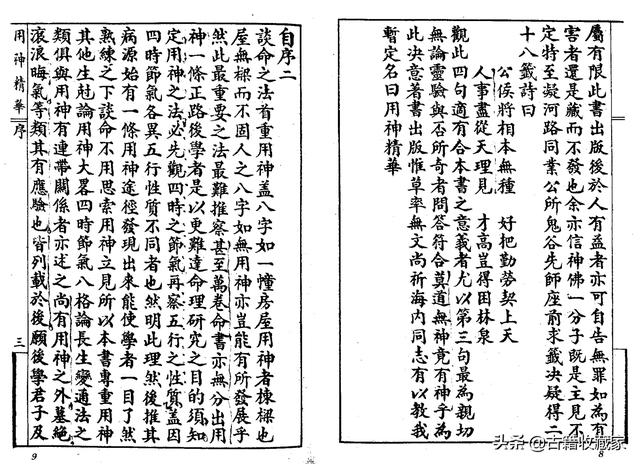 屬有限此書出版後於人有益者亦可自告無罪如為有
害者還是藏而不發也余亦信神佛一分子既是主見不
定特至凝河路同業公所鬼谷先師座前求籤決疑得二
十八籤詩曰
公侯將相本無種 好把勤勞契上天
人事盡從天理見 才高豈得困林泉
觀此四句適有合本書之意義者尤以第三句最為親切
無論靈驗與否所奇者問答符合莫道無神竟有神乎為
此決意著書出版惟草率無文尚祈海內同志有以教我
暫定名曰用神精華
8
自序二
談命之法首重用神蓋八字如一幢房屋用神者棟樑也
屋無樑而不固人之八字如無用神亦豈能有所發展乎
然此最重要之法最難推察甚至萬卷命書亦無分出用
神一條正路後學者是以更難達命理研究之目的須知
定用神之法必先觀四時之節氣再察五行之性質蓋因
四時節氣各異五行性質不同者也然明此理然後推其
病源始有一條用神途徑發現出來能使學者一目了然
熟練之下談命不用思索用神立見所以本書專重用神
其他生尅論用神大畧四時節氣八格論長生變通法之
類俱與用神有連帶關係者亦述之尚有用神之外墓絕
滾浪晦氣等類其有應驗也皆列載於後願後學君子及
用神精華 序
三
9
头条 @古籍收藏家